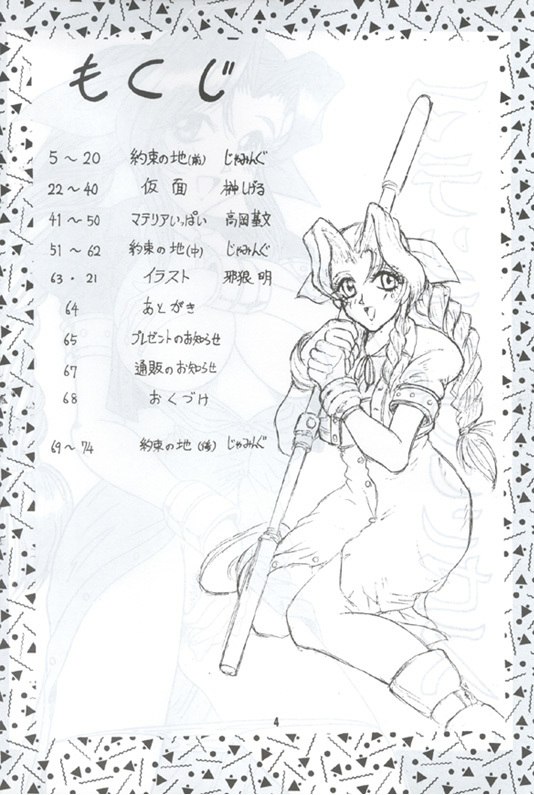 もくじ
5～20 約束の地(前) じゃみんぐ
22～40 仮面 榊しげる
41～50 マテリアいっぱい 高岡基文
51～62 約束の地(中) じゃみんぐ
63・21 イラスト 邪狼明
64 あとがき
65 プレゼントのお知らせ
67 通販のお知らせ
68 おくづけ
69～74 約束の地(後) じゃみんぐ
4